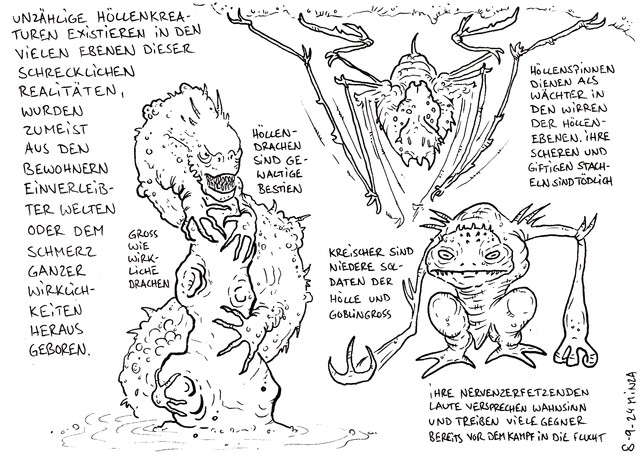 UNZÄHLIGE HÖLLENKREA-
TUREN EXISTIEREN IN DEN
VIELEN EBENEN DIESER
SCHRECKLICHEN
REALITÄTEN,
WURDEN
ZUMEIST
AUS DEN
BEWOHNERN
EINVERLEIB-
TER WELTEN
ODER DEM
SCHMERZ
GANZER
WIRKLICH-
KEITEN
HERAUS
GEBOREN.
HÖLLEN-
DRACHEN
SIND GE-
WALTIGE
BESTIEN
GROSS
WIE
WIRK-
LICHE
DRACHEN
HÖLLENSPINNEN
DIENEN ALS
WÄCHTER IN
DEN WIRREN
DER HÖLLEN-
EBENEN. IHRE
SCHEREN UND
GIFTIGEN STACH-
ELN SIND TÖDLICH
KREISCHER SIND
NIEDERE SOL-
DATEN DER
HÖLLE UND
GOBLINGROSS
IHRE NERVENZERFETZENDEN
LAUTE VERSPRECHEN WAHNSINN
UND TREIBEN VIELE GEGNER
BEREITS VOR DEM KAMPF IN DIE FLUCHT
8-9-24 MINZA